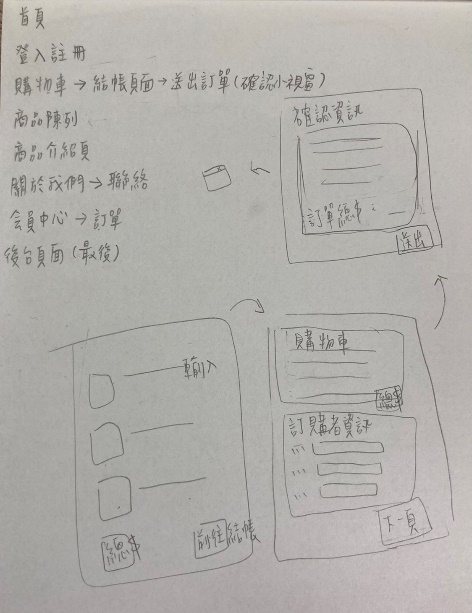 首頁
登入註冊
購物車→結帳頁面→送出訂單(確認小視窗)
商品陳列
商品介紹頁
關於我們→聯絡
会員中心→訂單
後台頁面(最後)
確認資訊
訂單總
送出
輸入
總
前往結帳
購物車
總
訂購者資訊
下一頁